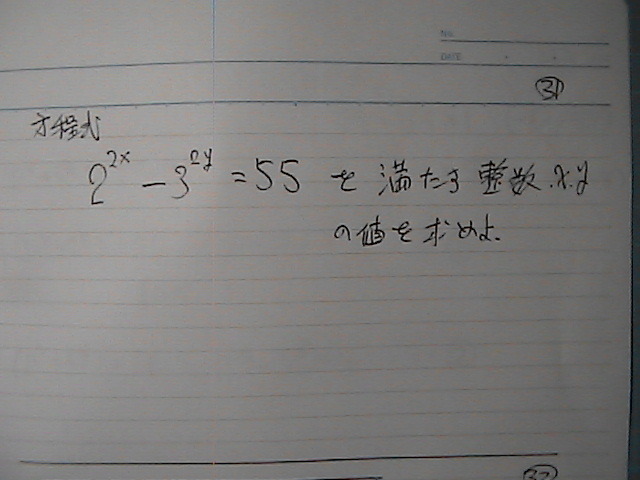 No.
DATE
31
方程式
2^{2x} - 3^{2y} = 55 を 満たす 整数 x.y
の値を求めよ.
32